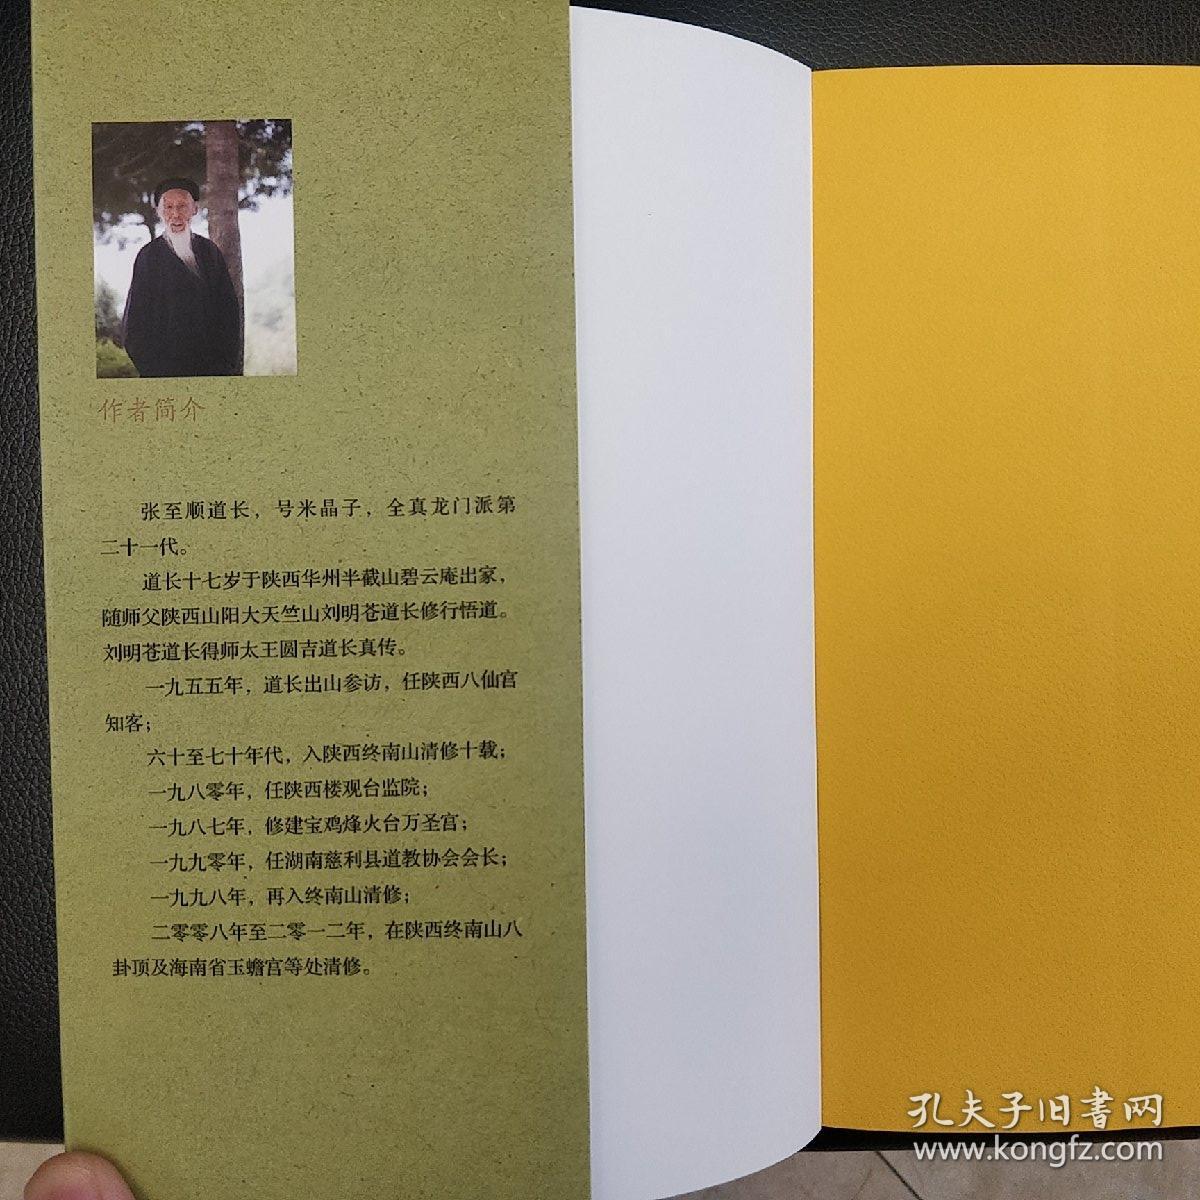 作者简介
张至顺道长，号米晶子，全真龙门派第
二十一代。
道长十七岁于陕西华州半截山碧云庵出家，
随师父陕西山阳大天竺山刘明苍道长修行悟道。
刘明苍道长得师太王圆吉道长真传。
一九五五年，道长出山参访，任陕西八仙宫
知客；
六十至七十年代，入陕西终南山清修十载；
一九八零年，任陕西楼观台监院；
一九八七年，修建宝鸡烽火台万圣宫；
一九九零年，任湖南慈利县道教协会会长；
一九九八年，再入终南山清修；
二零零八年至二零一二年，在陕西终南山八
卦顶及海南省玉蟾宫等处清修。
孔夫子旧書网
www.kongfz.com